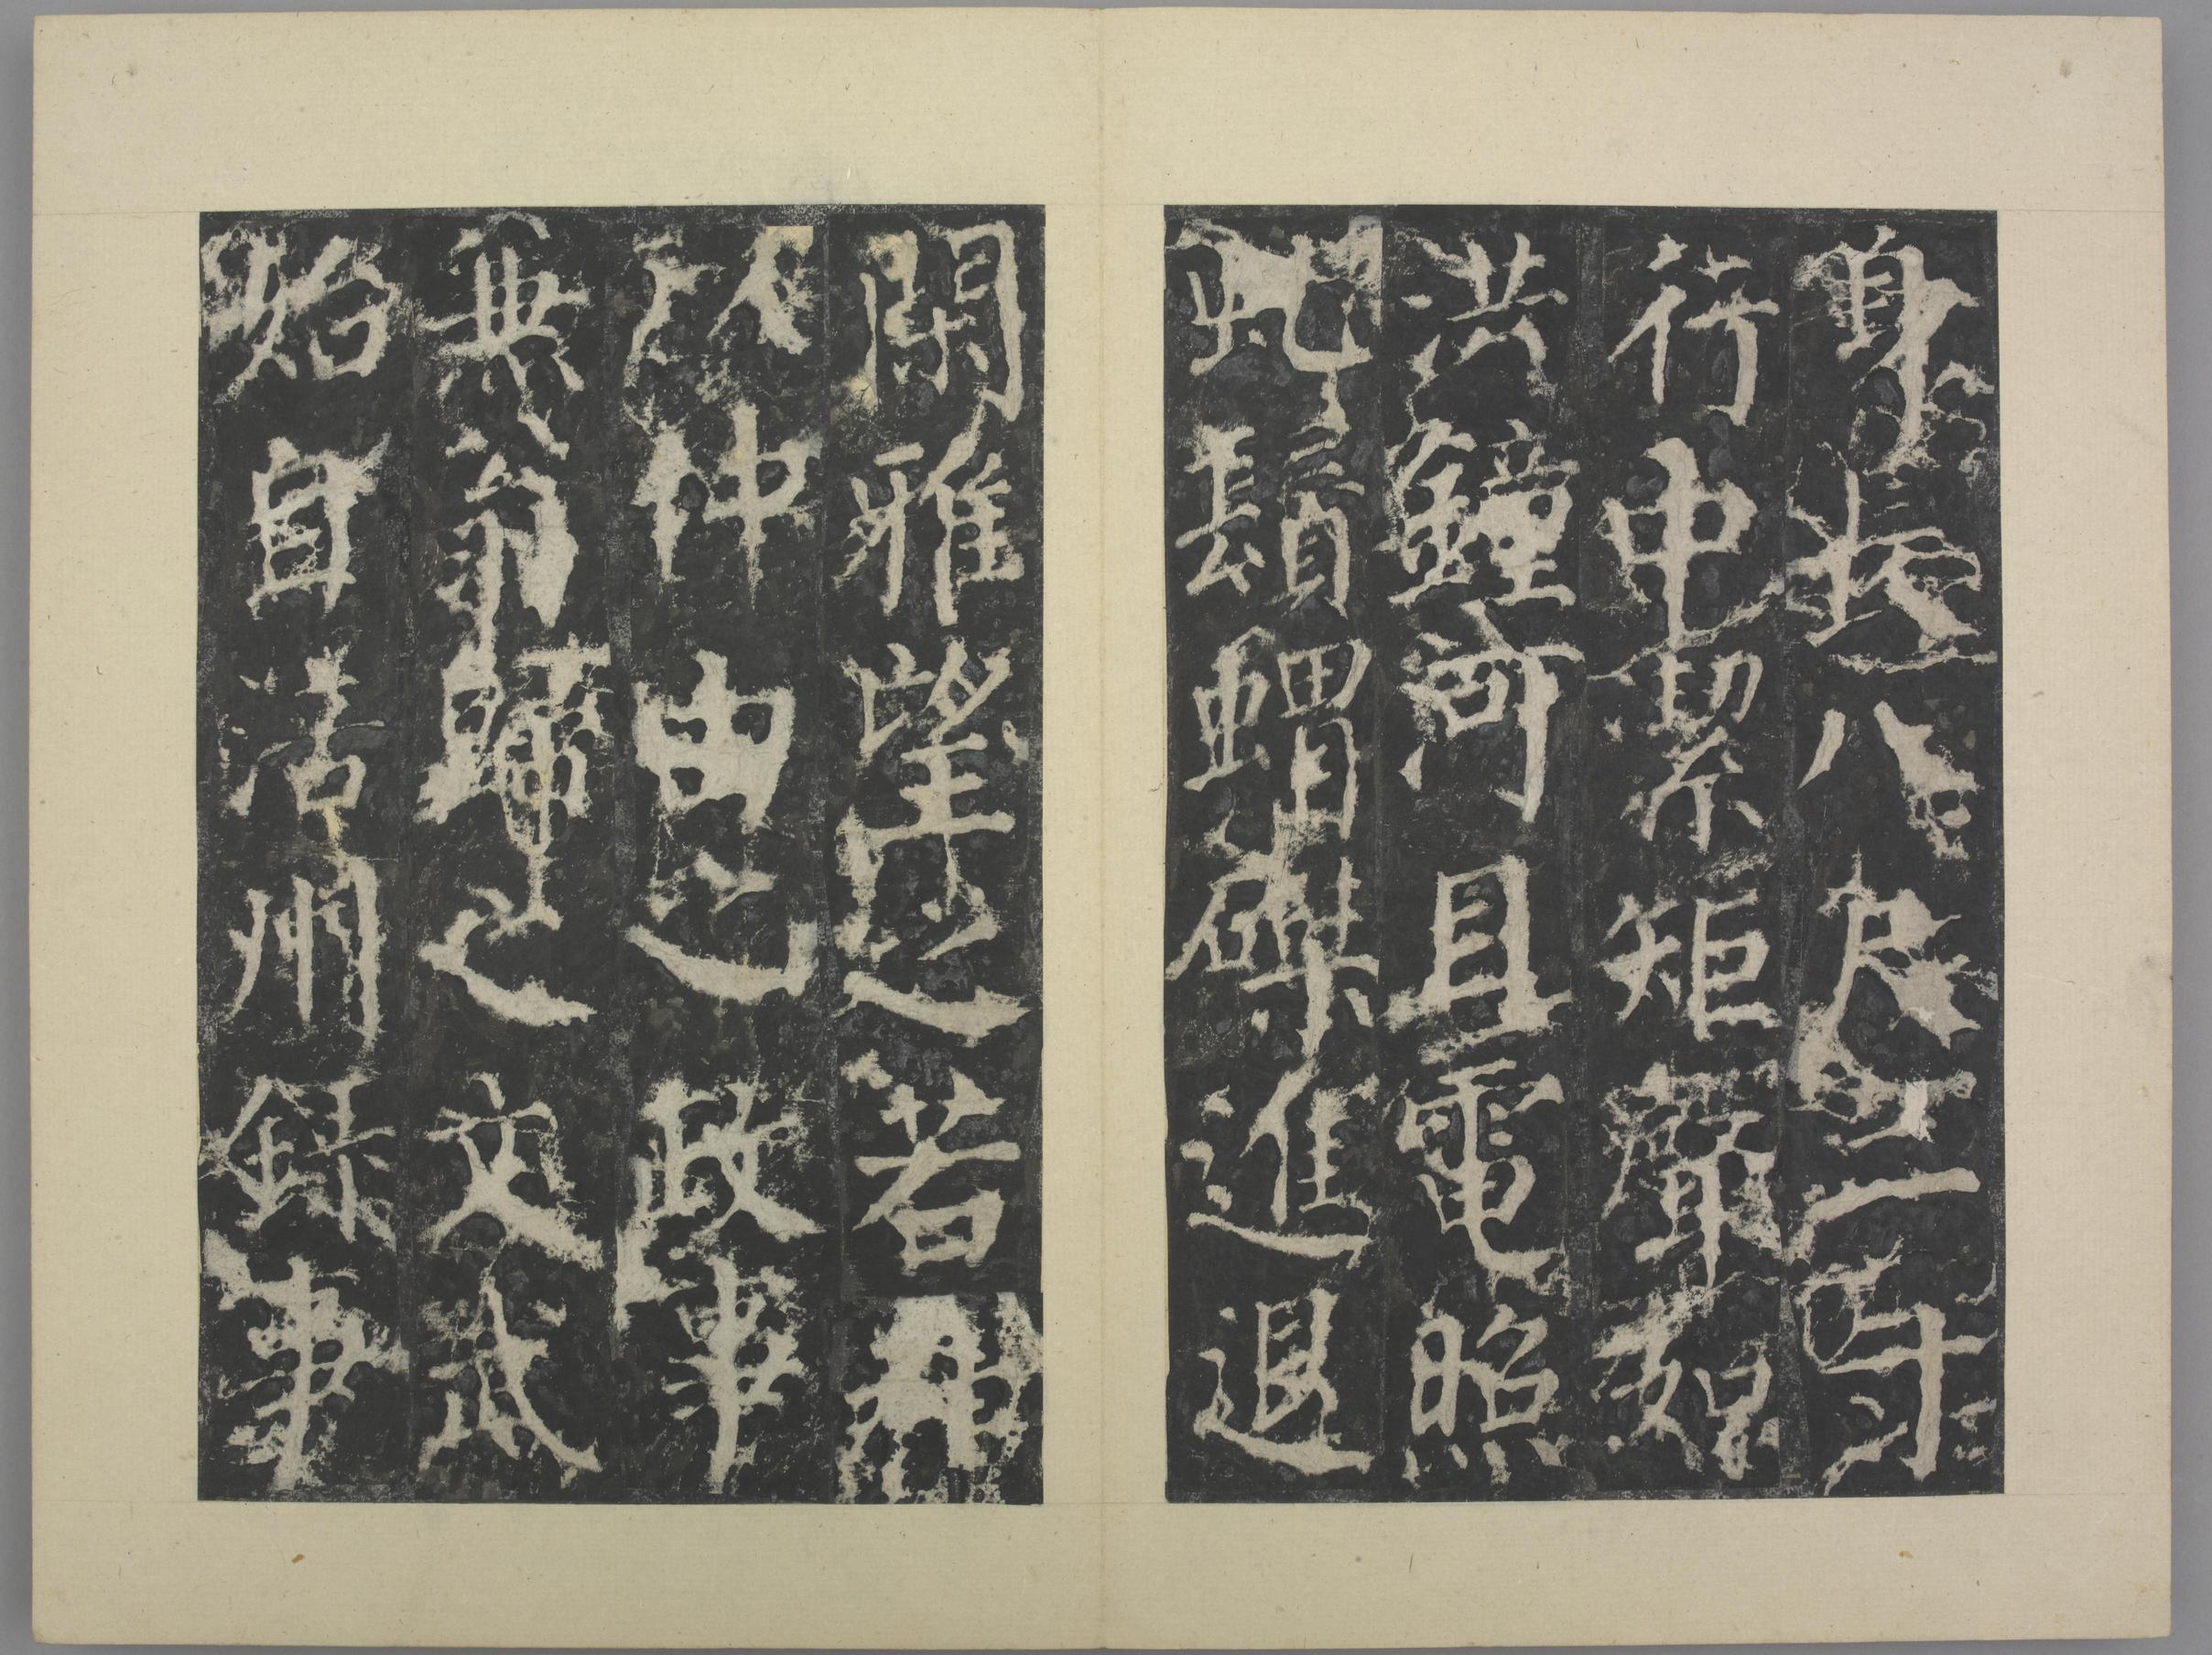 身長八尺二寸
行中絜矩聲如
洪鐘河目電照
虬鬚蝟磔進退
閑雅望之若神
以仲由之政事
兼翁歸之文武
始自涪州録事